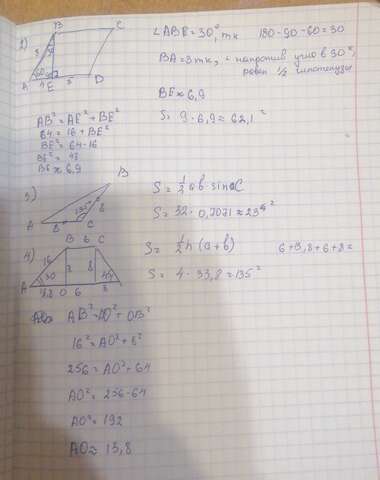 ∠ABE = 30°, тк 180-90-60=30
напротив угла в 30°,
равен 1/2 гипотенузы
BE ≈ 6,9
S = 9·6,9 = 62,1²
AB² = AE² + BE²
64 = 16 + BE²
BE² = 64-16
BE² = 48
BE ≈ 6,9
3)
A B C
135°
S = 1/2 ab·sin C
4)
B 6 C
16 8
30 45
A 0 6
S = 1/2 h (a+b)
6+13,8+6+8=
S = 4·33,8 = 135²
AB² = AO² + OB²
16² = AO² + 8²
256 = AO² + 64
AO² = 256-64
AO² = 192
AO ≈ 13,8